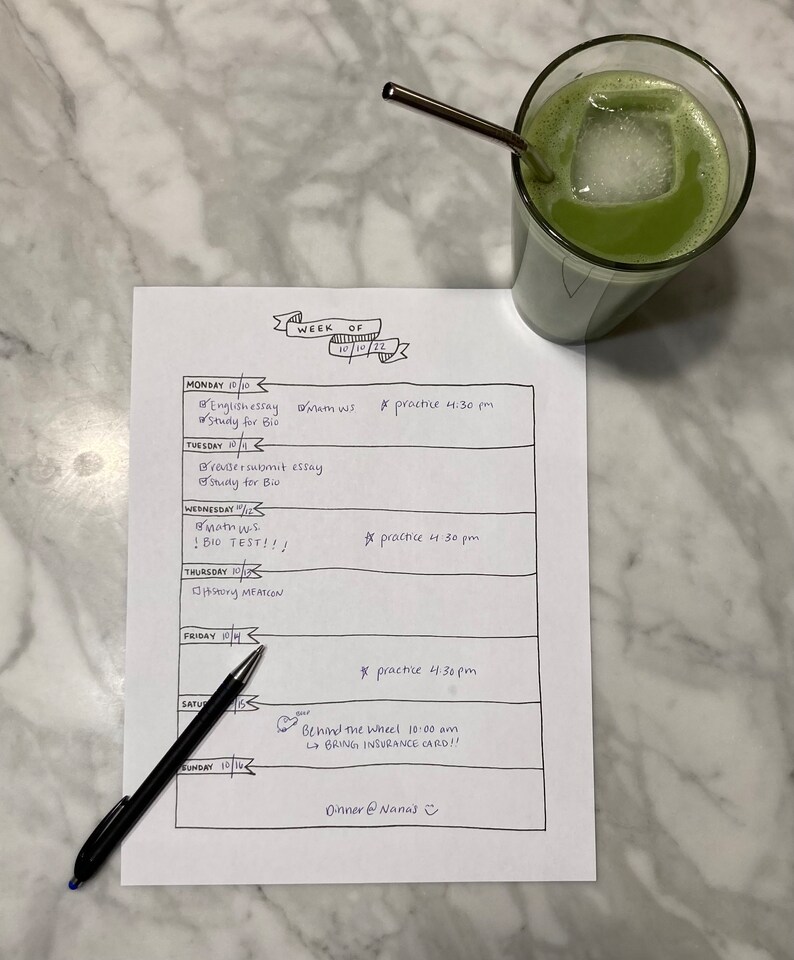 WEEK OF
10/10/22
MONDAY 10/10
☑English essay ☑Math WS ☆ practice 4:30 pm
☑Study for Bio
TUESDAY 10/11
☑revise+submit essay
☑Study for Bio
WEDNESDAY 10/12
☑Math W.S.
! BIO TEST!!! ☆ practice 4:30 pm
THURSDAY 10/13
☐History MEATCON
FRIDAY 10/14
☆ practice 4:30 pm
10/15
BEEP
Behind the Wheel 10:00 am
↳ BRING INSURANCE CARD!!
SUNDAY 10/16
Dinner @ Nana's